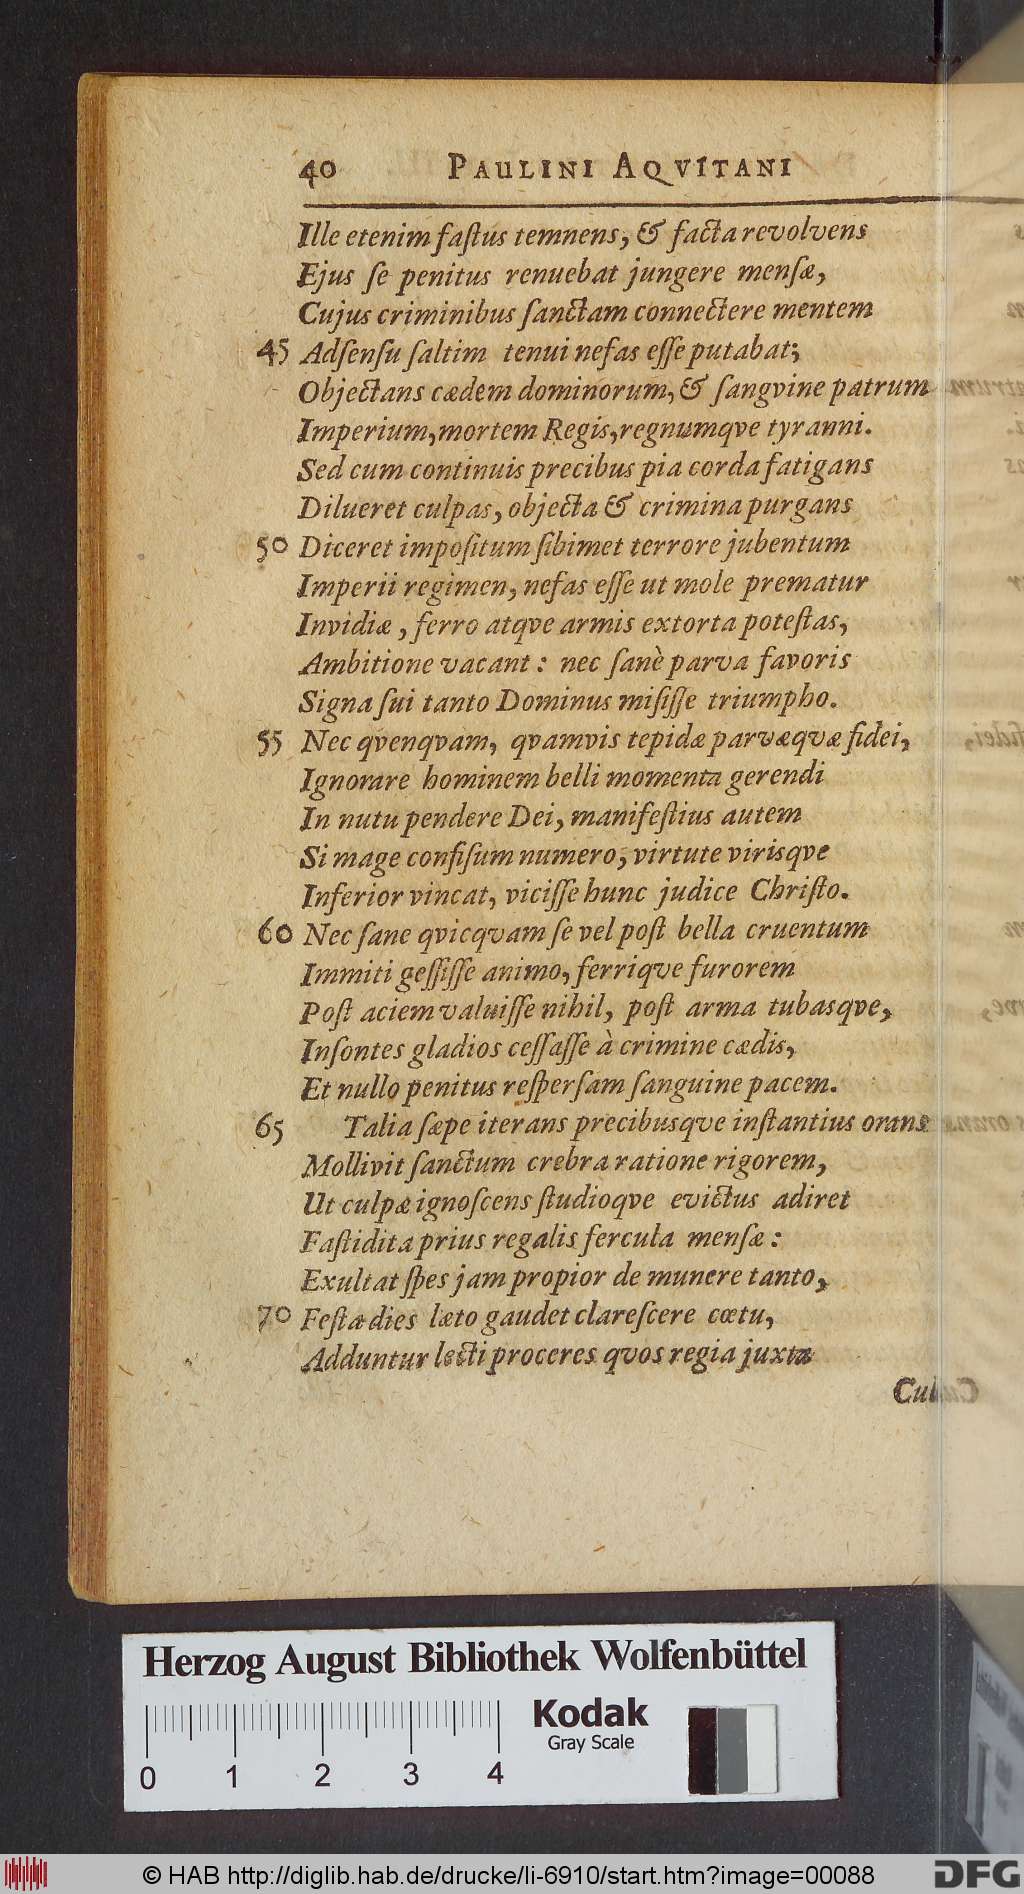 40 PAULINI AQVITANI
Ille etenim faſtus temnens, & facta revolvens
Ejus ſe penitus renuebat jungere menſæ,
Cujus criminibus ſanctam connectere mentem
45 Adſenſu ſaltim tenui nefas eſſe putabat;
Objectans cædem dominorum, & ſangvine patrum
Imperium, mortem Regis, regnumqve tyranni.
Sed cum continuis precibus pia corda fatigans
Dilueret culpas, objecta & crimina purgans
50 Diceret impoſitum ſibimet terrore jubentum
Imperii regimen, nefas eſſe ut mole prematur
Invidiæ, ferro atqve armis extorta poteſtas,
Ambitione vacant: nec ſanè parva favoris
Signa ſui tanto Dominus miſiſſe triumpho.
55 Nec qvenqvam, qvamvis tepidæ parvæqvæ fidei,
Ignorare hominem belli momenta gerendi
In nutu pendere Dei, manifeſtius autem
Si mage confiſum numero, virtute virisqve
Inferior vincat, viciſſe hunc judice Chriſto.
60 Nec ſane qvicqvam ſe vel poſt bella cruentum
Immiti geſſiſſe animo, ferriqve furorem
Poſt aciem valuiſſe nihil, poſt arma tubasqve,
Inſontes gladios ceſſaſſe à crimine cædis,
Et nullo penitus reſperſam ſanguine pacem.
65 Talia ſæpe iterans precibusqve inſtantius orans
Mollivit ſanctum crebra ratione rigorem,
Ut culpæ ignoſcens ſtudioqve evictus adiret
Faſtidita prius regalis fercula menſæ:
Exultat ſpes jam propior de munere tanto,
70 Feſta dies læto gaudet clareſcere cœtu,
Adduntur lecti proceres qvos regia juxta
Herzog August Bibliothek Wolfenbüttel
Kodak
Gray Scale
0 1 2 3 4
© HAB http://diglib.hab.de/drucke/li-6910/start.htm?image=00088
DFG